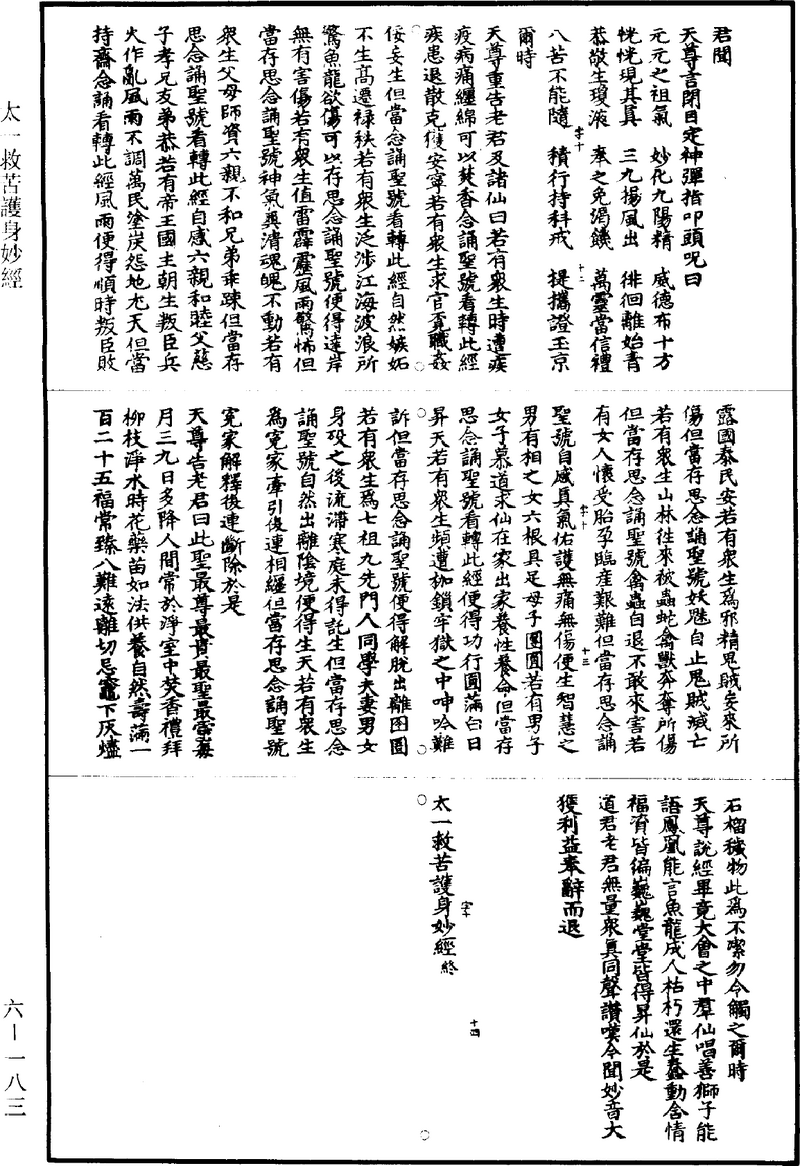 君聞
天尊言閉目定神彈指叩頭呪曰
元元之祖氣　妙化九陽精　威德布十方
恍恍現其真　三九揚風出　徘徊離始青
恭敬生瓊液　奉之免渴饑　萬靈當信禮
八苦不能隨　積行持科戒　提攜證玉京
爾時
天尊重告老君及諸仙曰若有衆生時遭疾
疫病痛纏綿可以焚香念誦聖號看轉此經
疾患退散克獲安寧若有衆生求官覓職姦
佞妄生但當念誦聖號看轉此經自然嫉妬
不生高遷祿秩若有衆生泛涉江海波浪所
驚魚龍欲傷可以存思念誦聖號便得達岸
無有害傷若有衆生值雷霹靂風雨驚怖但
當存思念誦聖號神氣爽清魂魄不動若有
衆生父母師資六親不和兄弟乖踈但當存
思念誦聖號看轉此經自感六親和睦父慈
子孝兄友弟恭若有帝王國土朝生叛臣兵
火作亂風雨不調萬民塗炭怨地尤天但當
持齋念誦看轉此經風雨便得順時叛臣敗
露國泰民安若有衆生為邪精鬼賊妄來所
傷但當存思念誦聖號妖魅自止鬼賊滅亡
若有衆生山林往來被蟲蛇禽獸奔奪所傷
但當存思念誦聖號禽蟲自退不敢來害若
有女人懷受胎孕臨産艱難但當存思念誦
聖號自感真氣佑護無痛無傷便生智慧之
男有相之女六根具足母子團圓若有男子
女子慕道求仙在家出家養性養命但當存
思念誦聖號看轉此經便得功行圓滿白日
昇天若有衆生頻遭枷鎖牢獄之中呻吟難
訴但當存思念誦聖號便得解脫出離囹圄
若有衆生爲七祖九先門人同學夫妻男女
身歿之後流滯寒庭未得託生但當存思念
誦聖號自然出離陰境便得生天若有衆生
為寃家牽引後連相纏但當存思念誦聖號
寃家解釋後連斷除於是
天尊告老君曰此聖最尊最貴最聖最靈每
月三九日多降人間常於淨室中焚香禮拜
柳枝淨水時花藥苗如法供養自然壽滿一
百二十五福常臻八難遠離切忌竈下灰爐
石榴穢物此為不潔勿令觸之爾時
天尊說經畢竟大會之中羣仙唱善獅子能
語鳳凰能言魚龍成人枯朽還生蠢動含情
福資皆徧巍巍堂堂皆得昇仙於是
道君老君無量衆真同聲讚嘆今聞妙音大
獲利益奉辭而退
太一救苦護身妙經終
字十
十二
字十
十三
字十
十四
太一救苦護身妙經
六—一八三